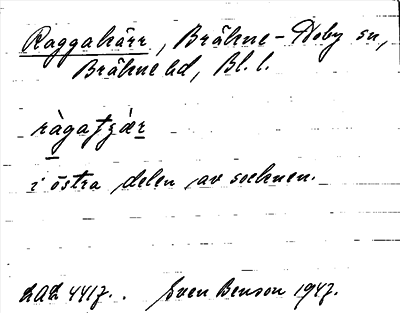 Raggakärr, Bräkne-Hoby sn,
Bräkne hd, Bl. l.
ràgaƫɟær
i östra delen av socknen.
LAL 4417. Sven Benson 1947.